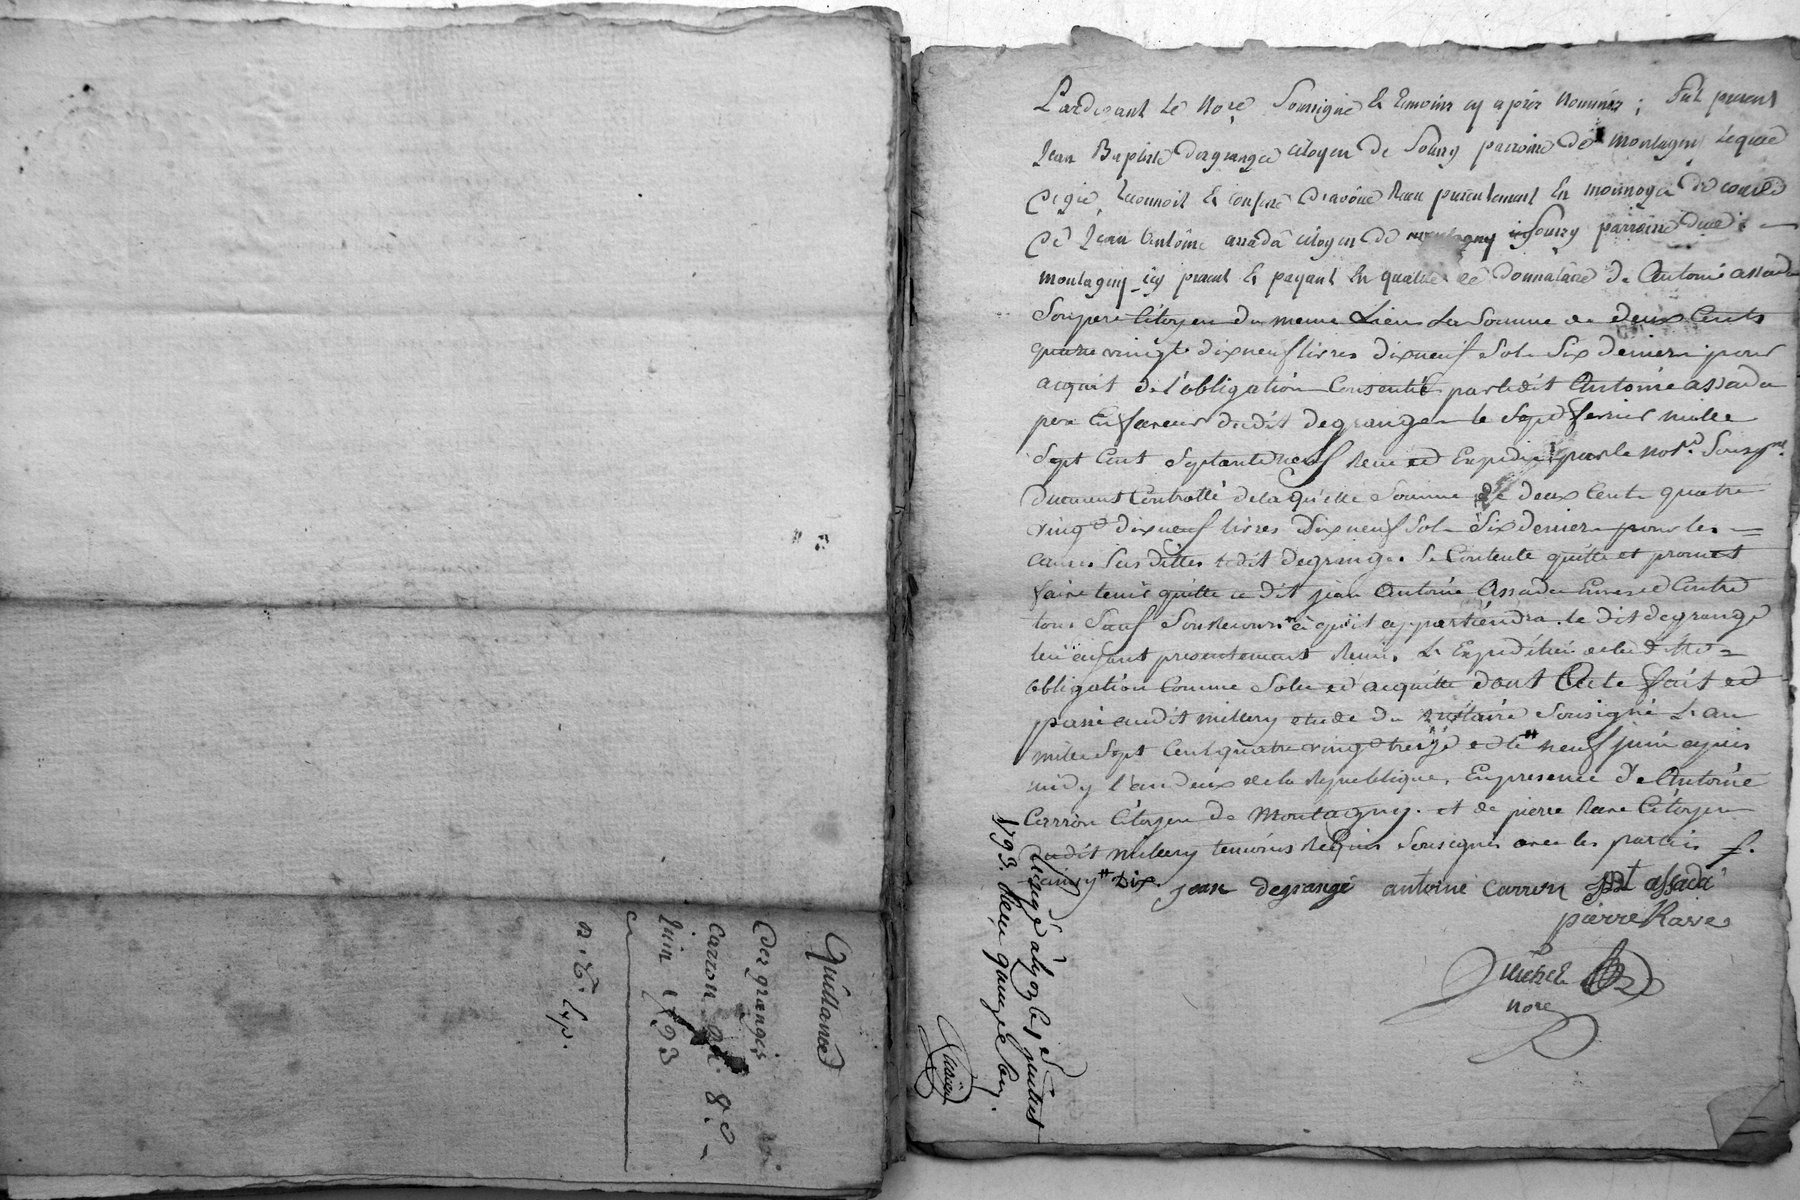 Quittance
Desgranges
Carron
Juin 1793
n. E. Exp.
Pardevant le Nore Soussigné & temoins cy après nommés; fut present
Jean Baptiste desgrange citoyen de Sourzy parroisse de montagny lequel
de gré, reconnoit & confesse avoir Receu presentement En monnoye de cours
de Jean Antoine assada citoyen de Sourzy parroisse dudit
montagny icy present & payant en qualité de donnataire de Antoine assada
Son pere Citoyen du meme Lieu La Somme de deux Cents
quatre vingt dixneuf livres dixneuf Sols Six deniers pour
acquit de l'obligation Consentie par ledit Antoine assada
pere En faveur dudit degrange le Sept fevrier mille
Sept Cent Septante neuf Receu et Expedié par le nore. Soussigné.
duement Controllé de laquelle Somme de deux Cents quatre
vingt dixneuf livres Dixneuf Sols Six deniers pour les =
causes Susdittes ledit degrange Se Contente quitte et promet
faire tenir quitte ce dit jean Antoine Assada Envers et Contre
tous Sauf Son Recours à qu'il appartiendra. le dit degrange
lui ayant presentement Remis L'Expedition de laditte =
obligation Comme Solue et acquitte dont Acte fait et
passé audit millery etude du notaire Sousigné L'an
mille Sept Cent quatre vingt treize et le neuf juin apres
midy l'an deux de la Republique, En presence de Antoine
Carron Citoyen de Montagny. et de pierre Rave Citoyen
dudit millery temoins Requis Sousignés avec les parties
Dix.
jean degrange antoine carron assada
pierre Rave
Michel
nore
1793. Receu quinze Sols.